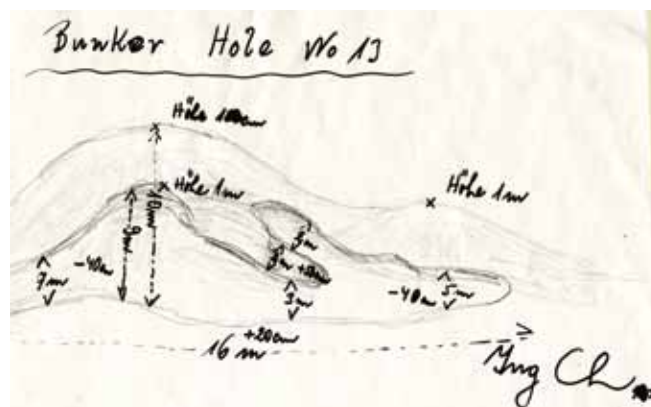 Bunker Hole No 13
Höhe 100cm
Höhe 1m
Höhe 1m
9m
10m
7m
-40cm
3m
3m
3m
-40cm
5m
+20cm
16 m
Ing Ch.